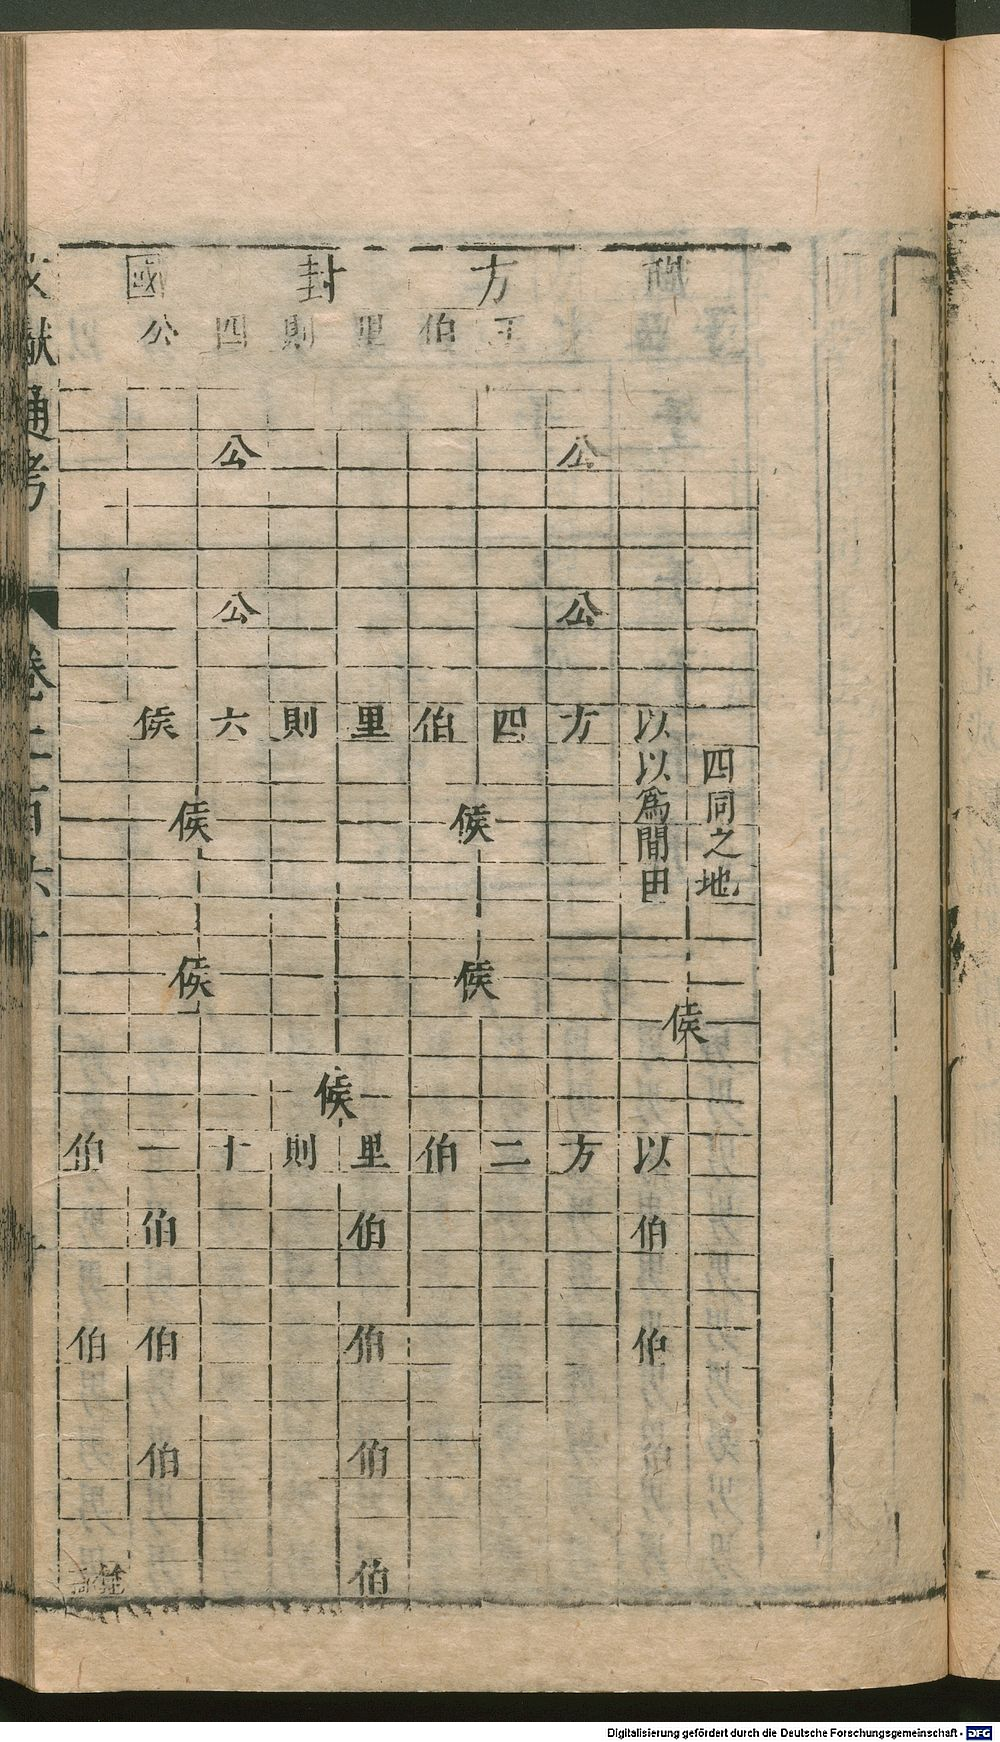 職方封國
五伯里則四公
公 公
公 公
以方四伯里則六侯
四同之地
以以為閒田
侯 侯
侯 侯
侯
侯
以方二伯里則十一伯
伯 伯 伯
伯 伯 伯 伯
伯 伯
伯
文獻通考
卷二百六十
Digitalisierung gefördert durch die Deutsche Forschungsgemeinschaft - DFG